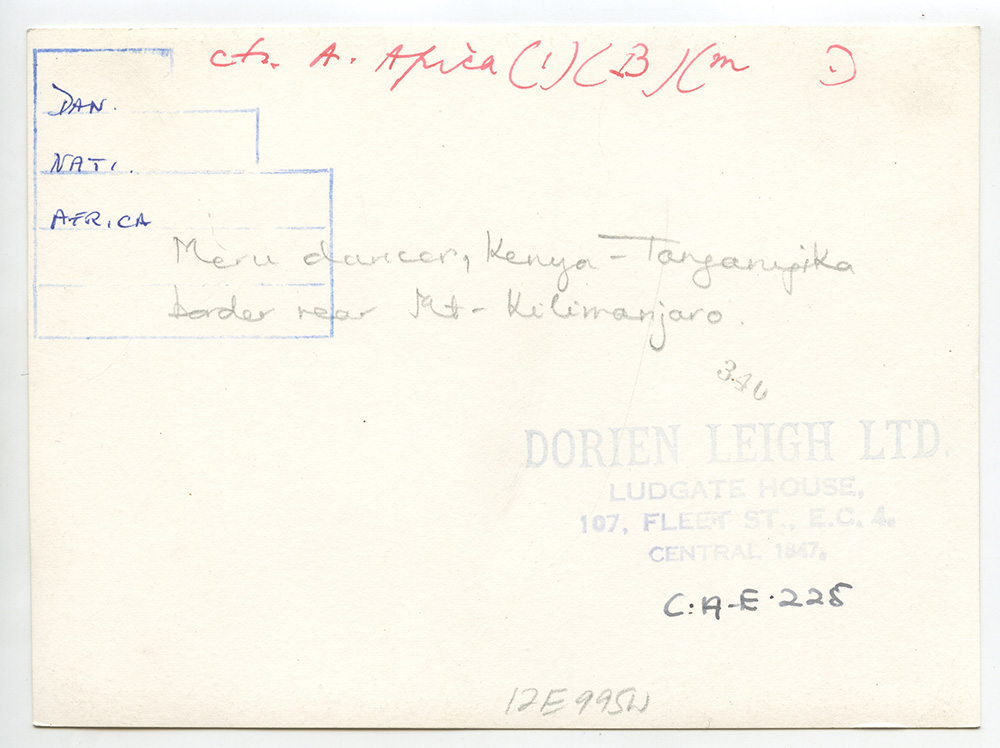 cts. A. Africa (1) (B) (m .)
DAN.
NATI.
AFRICA
Meru dancer, Kenya - Tanganyika
border near Mt - Kilimanjaro.
DORIEN LEIGH LTD.
LUDGATE HOUSE,
107, FLEET ST., E.C. 4.
CENTRAL 1847.
C.A-E.225
12E995W